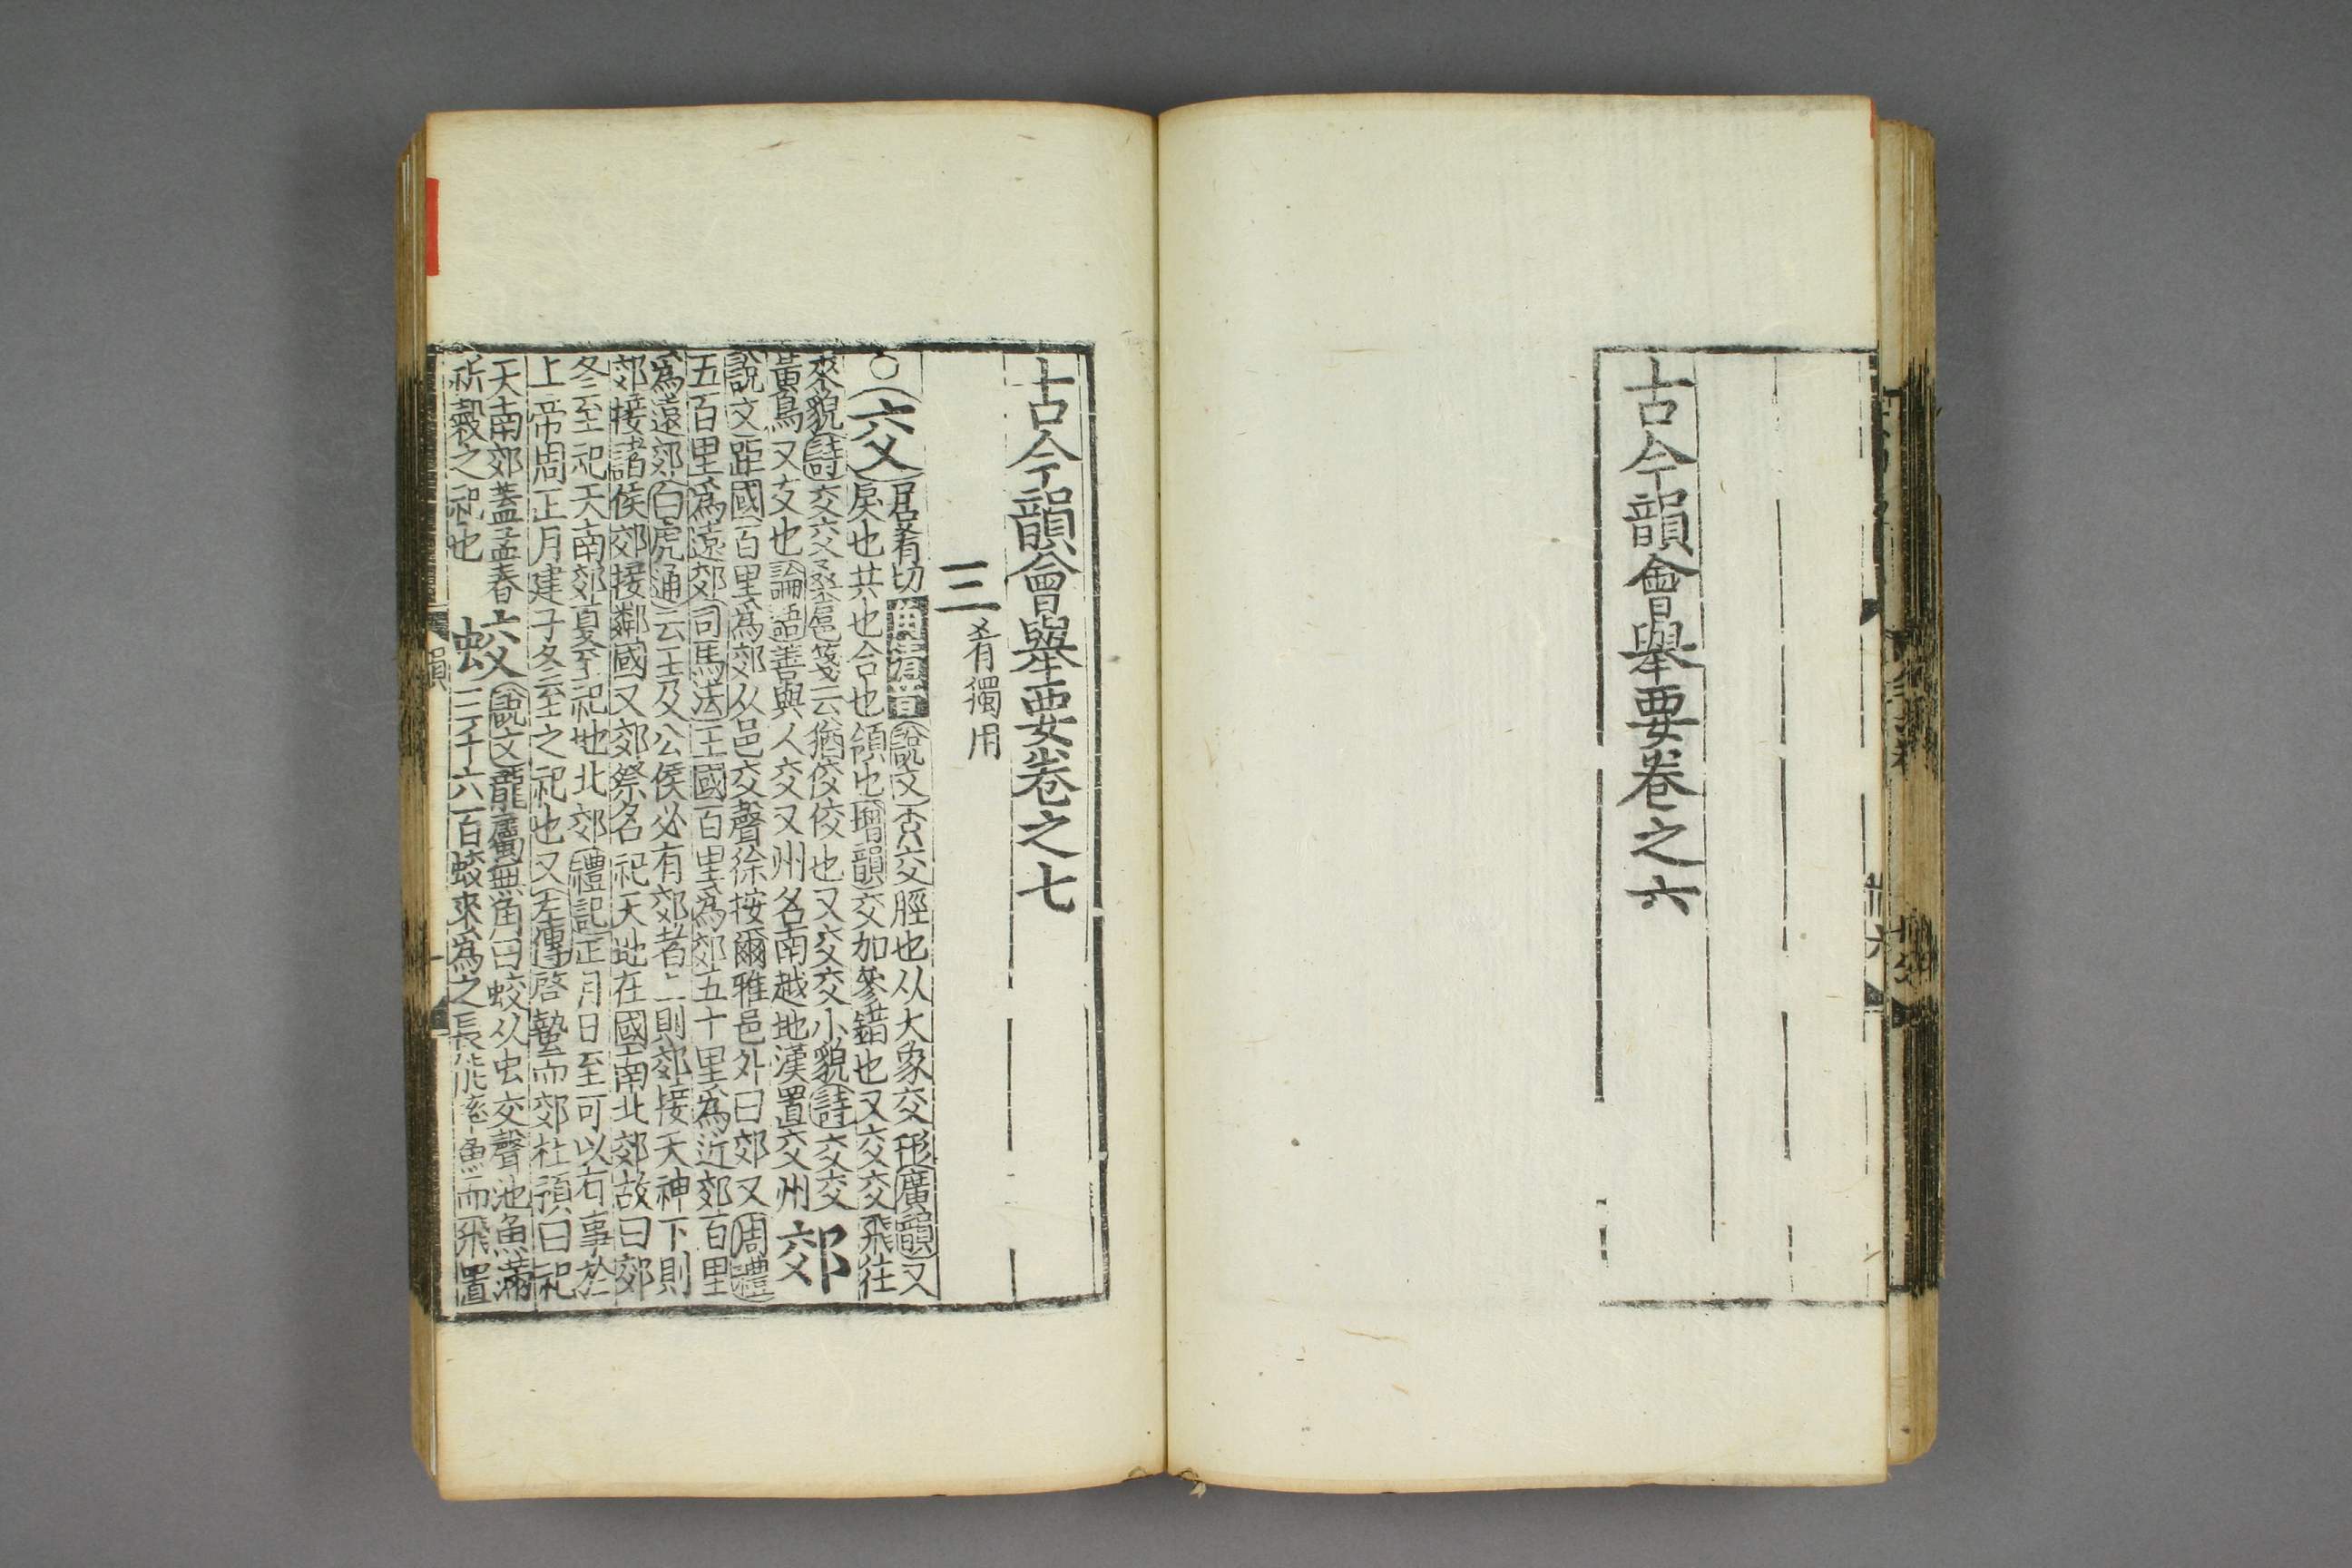 古今韻會舉要卷之六
古今韻會舉要卷之七
三 肴獨用
○交
居肴切 說文交脛也从大象交形廣韻又
戾也共也合也領也增韻交加參錯也又交交飛往
來貌詩交交桑扈箋云猶佼佼也又交交小貌詩交交
黃鳥又友也論語善與人交又州名南越地漢置交州
郊
說文距國百里爲郊从邑交聲徐按爾雅邑外曰郊又周禮
五百里爲遠郊司馬法王國百里爲郊五十里爲近郊百里
爲遠郊白虎通云王及公侯必有郊者上則郊接天神下則
郊接諸侯郊接鄰國又郊祭名祀天地在國南北郊故曰郊
冬至祀天南郊夏至祀地北郊禮記正月日至可以有事於
上帝周正月建子冬至之祀也又左傳啓蟄而郊杜預曰祀
天南郊蓋孟春
祈穀之祀也
蛟
說文龍屬無角曰蛟从虫交聲池魚滿
三千六百蛟來爲之長能率魚而飛置
韻